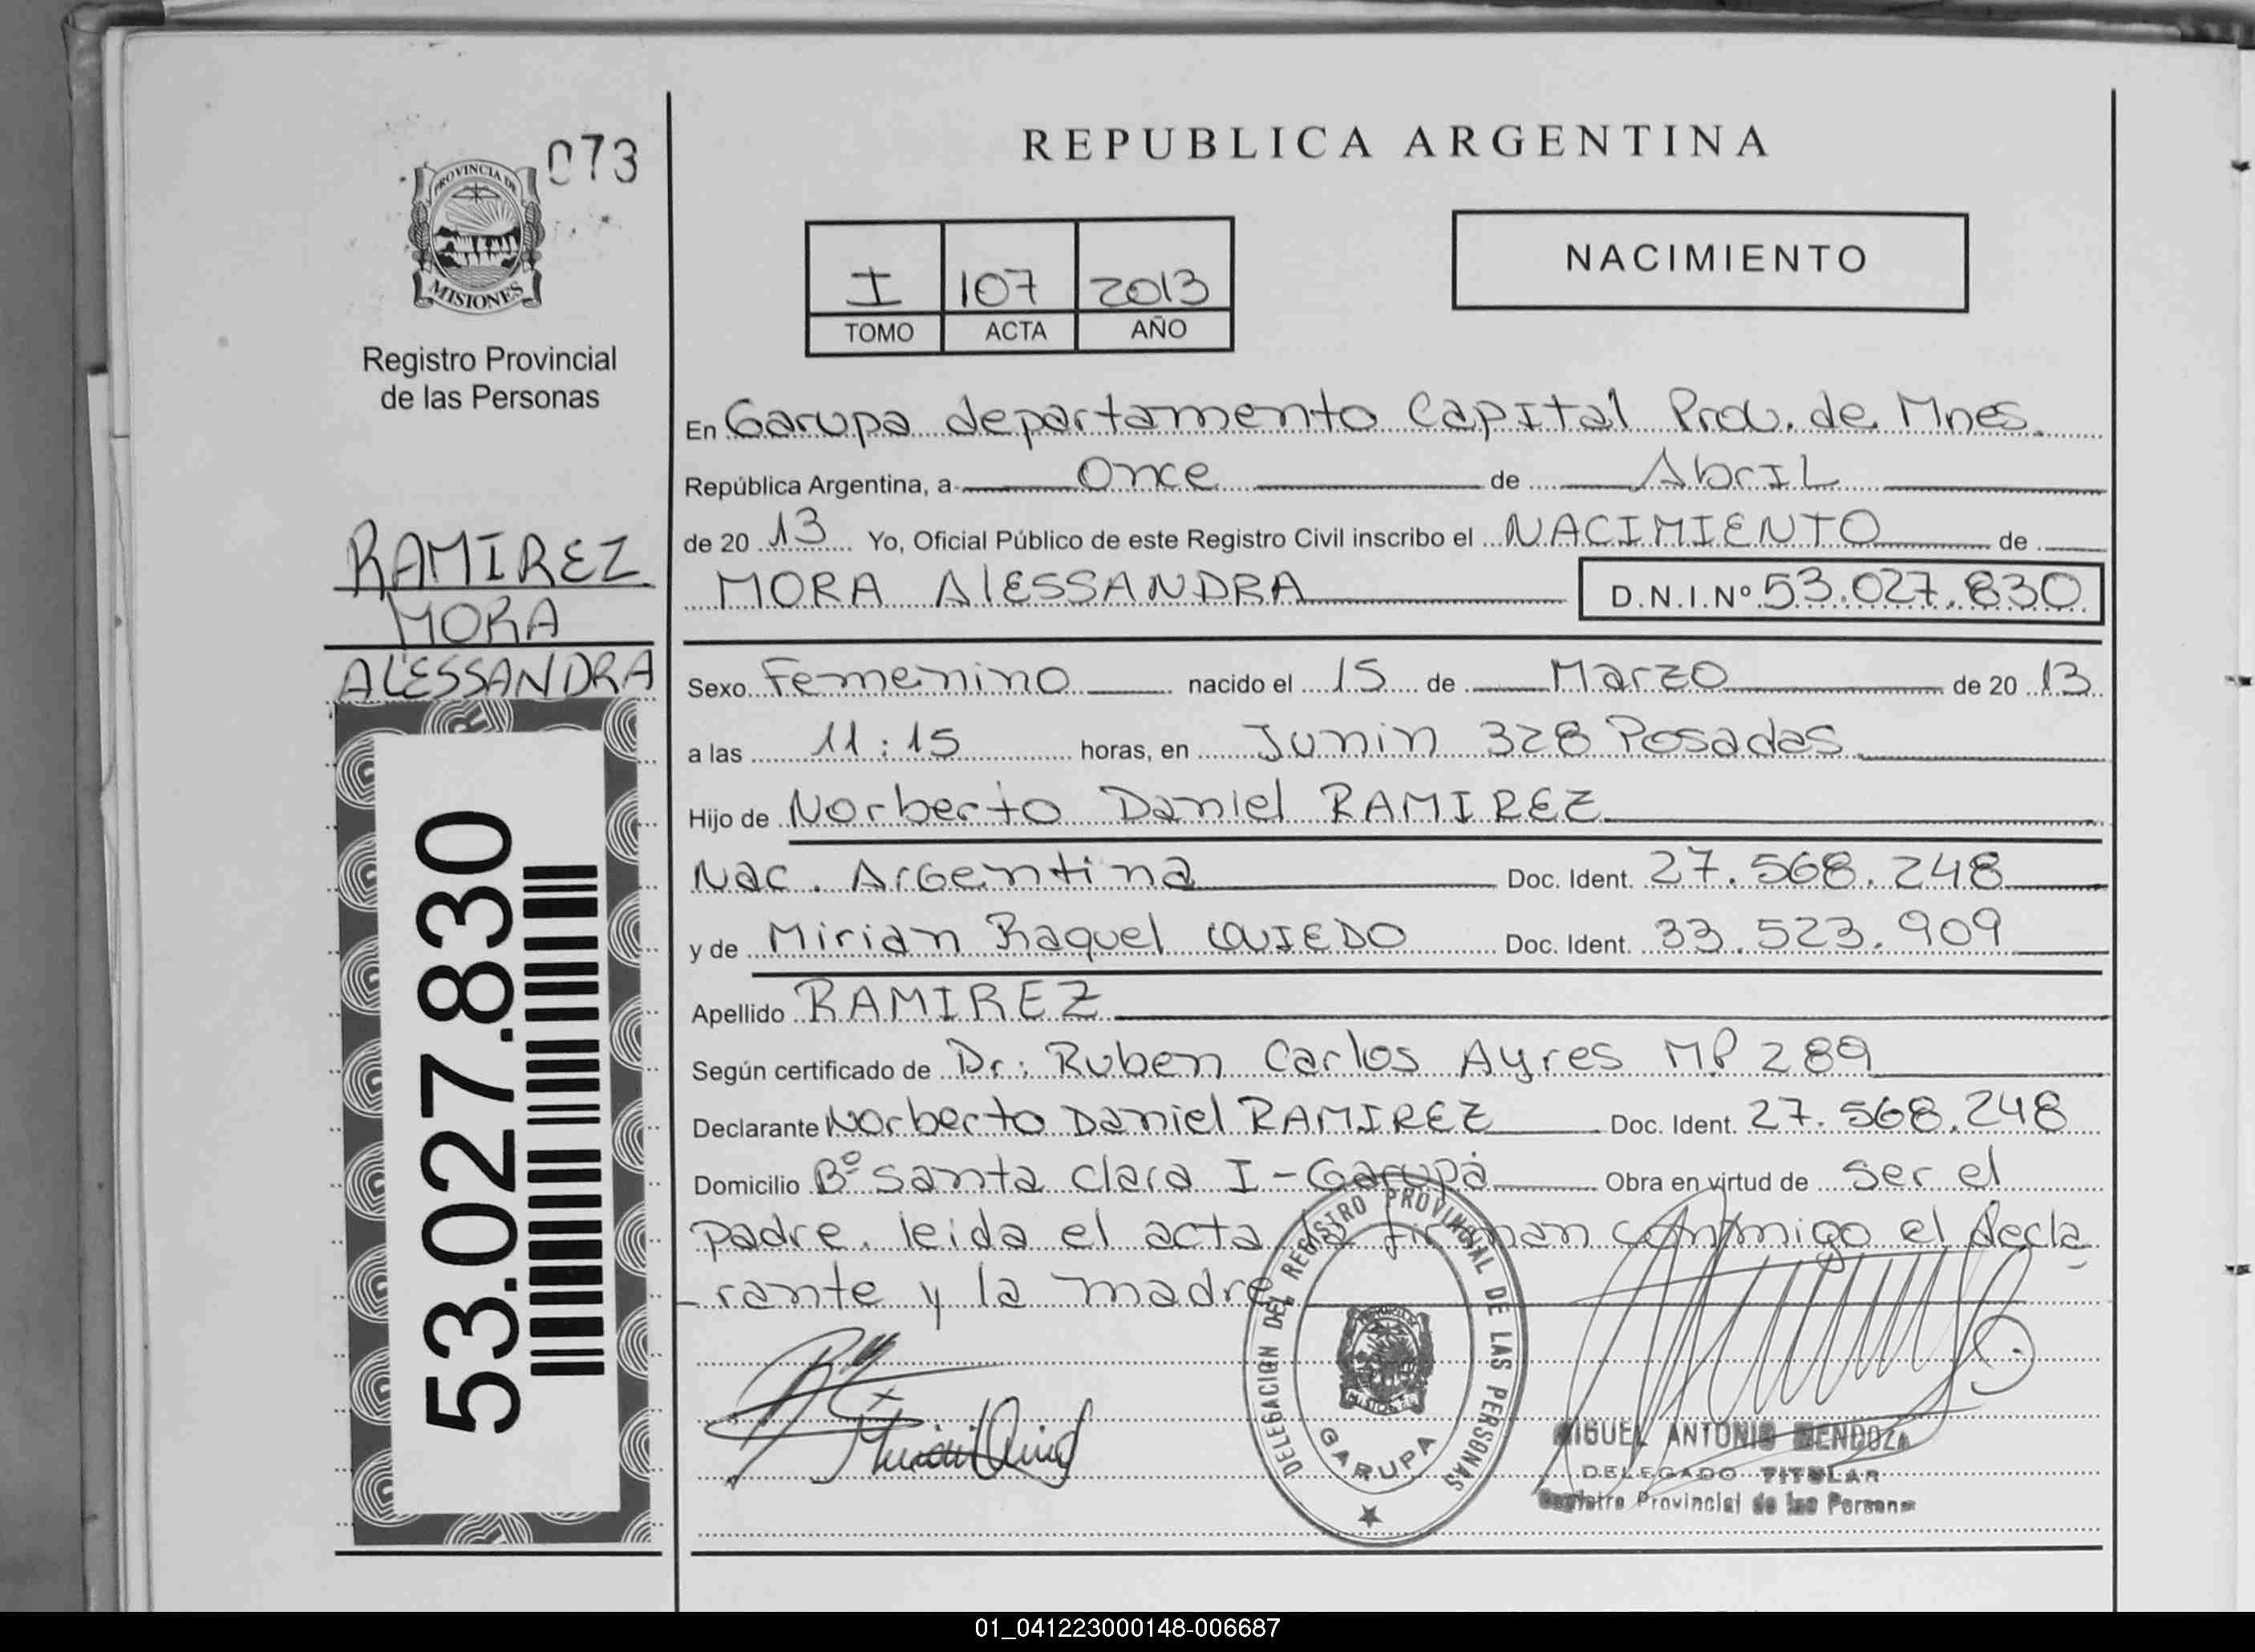 073
PROVINCIA DE
MISIONES
Registro Provincial
de las Personas
RAMIREZ
MORA
ALESSANDRA
53.027.830
REPUBLICA ARGENTINA
I 107 2013
TOMO ACTA AÑO
NACIMIENTO
En Garupa departamento Capital Prov. de Mnes.
República Argentina, a Once de Abril
de 20 13 Yo, Oficial Público de este Registro Civil inscribo el NACIMIENTO de
MORA AlESSANDRA D.N.I.Nº 53.027.830
Sexo Femenino nacido el 15 de Marzo de 20 13
a las 11:15 horas, en Junin 328 Posadas
Hijo de Norberto Daniel RAMIREZ
Nac. Argentina Doc. Ident. 27.568.248
y de Mirian Raquel OVIEDO Doc. Ident. 33.523.909
Apellido RAMIREZ
Según certificado de Dr: Ruben Carlos Ayres MP 289
Declarante Norberto Daniel RAMIREZ Doc. Ident. 27.568.248
Domicilio Bº Santa Clara I - Garupá Obra en virtud de ser el
padre. leida el acta la firman conmigo el decla
-rante y la madre
DELEGACION DEL REGISTRO PROVINCIAL DE LAS PERSONAS
MISIONES
GARUPA
MIGUEL ANTONIO MENDOZA
DELEGADO TITULAR
Registro Provincial de las Personas
01_041223000148-006687